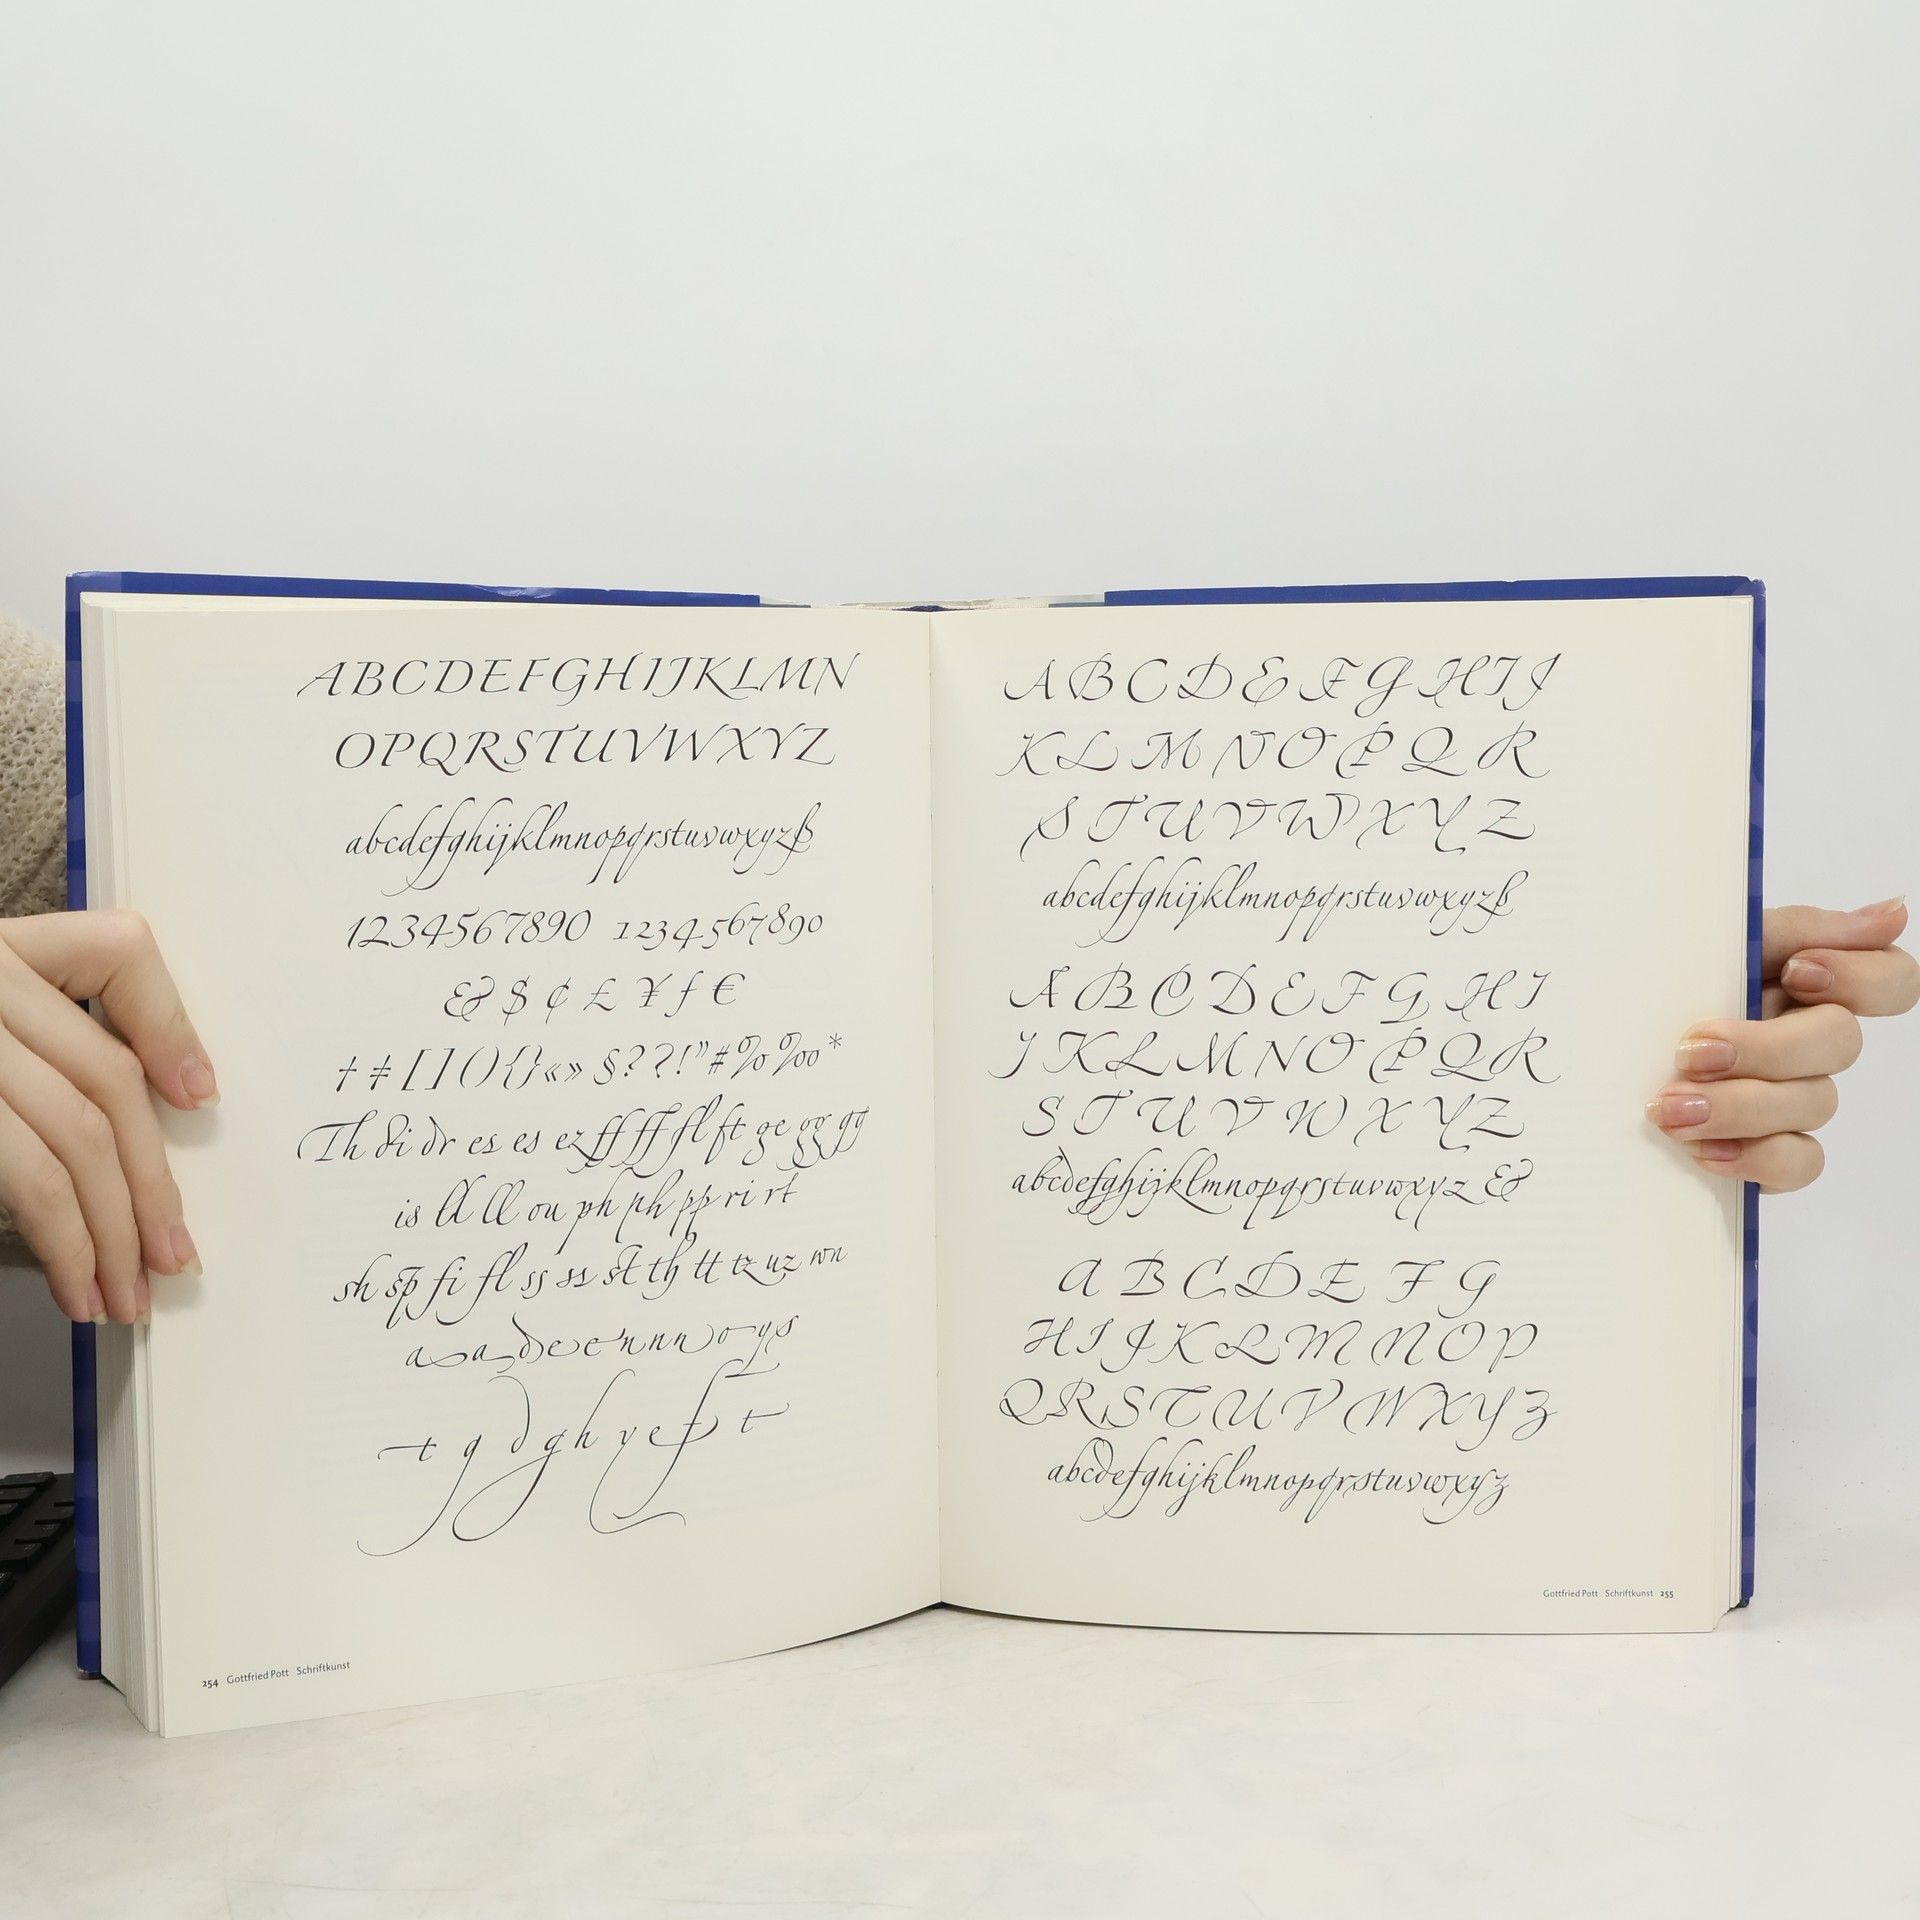 ABCDEFGHIJKLMN
OPQRSTUVWXYZ
abcdefghijklmnopqrstuvwxyzß
1234567890 1234567890
& $ ¢ £ ¥ ƒ €
† ‡ [ ] ( ) { } « » § ? ? ! " # % ‰ *
Th di dr es es ez ff ff fl ft ge gg gg
is ll ll ou ph ph pp ri rt
sh sp fi fl ss ss st th tt tz uz wn
a a d e e n n n o y s
t g d g h y e f t
254 Gottfried Pott Schriftkunst
A B C D E F G H I J
K L M N O P Q R
S T U V W X Y Z
abcdefghijklmnopqrstuvwxyzß
A B C D E F G H I
J K L M N O P Q R
S T U V W X Y Z
abcdefghijklmnopqrstuvwxyz &
A B C D E F G
H I J K L M N O P
Q R S T U V W X Y Z
abcdefghijklmnopqrstuvwxyz
Gottfried Pott Schriftkunst 255